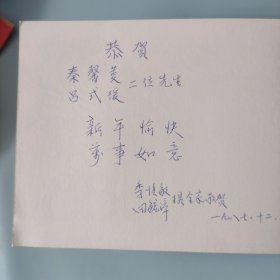 恭贺
秦馨菱
吕式俊 二位先生
新年愉快
万事如意
李慎敏
田毓泽 携全家敬贺
一九八七、十二